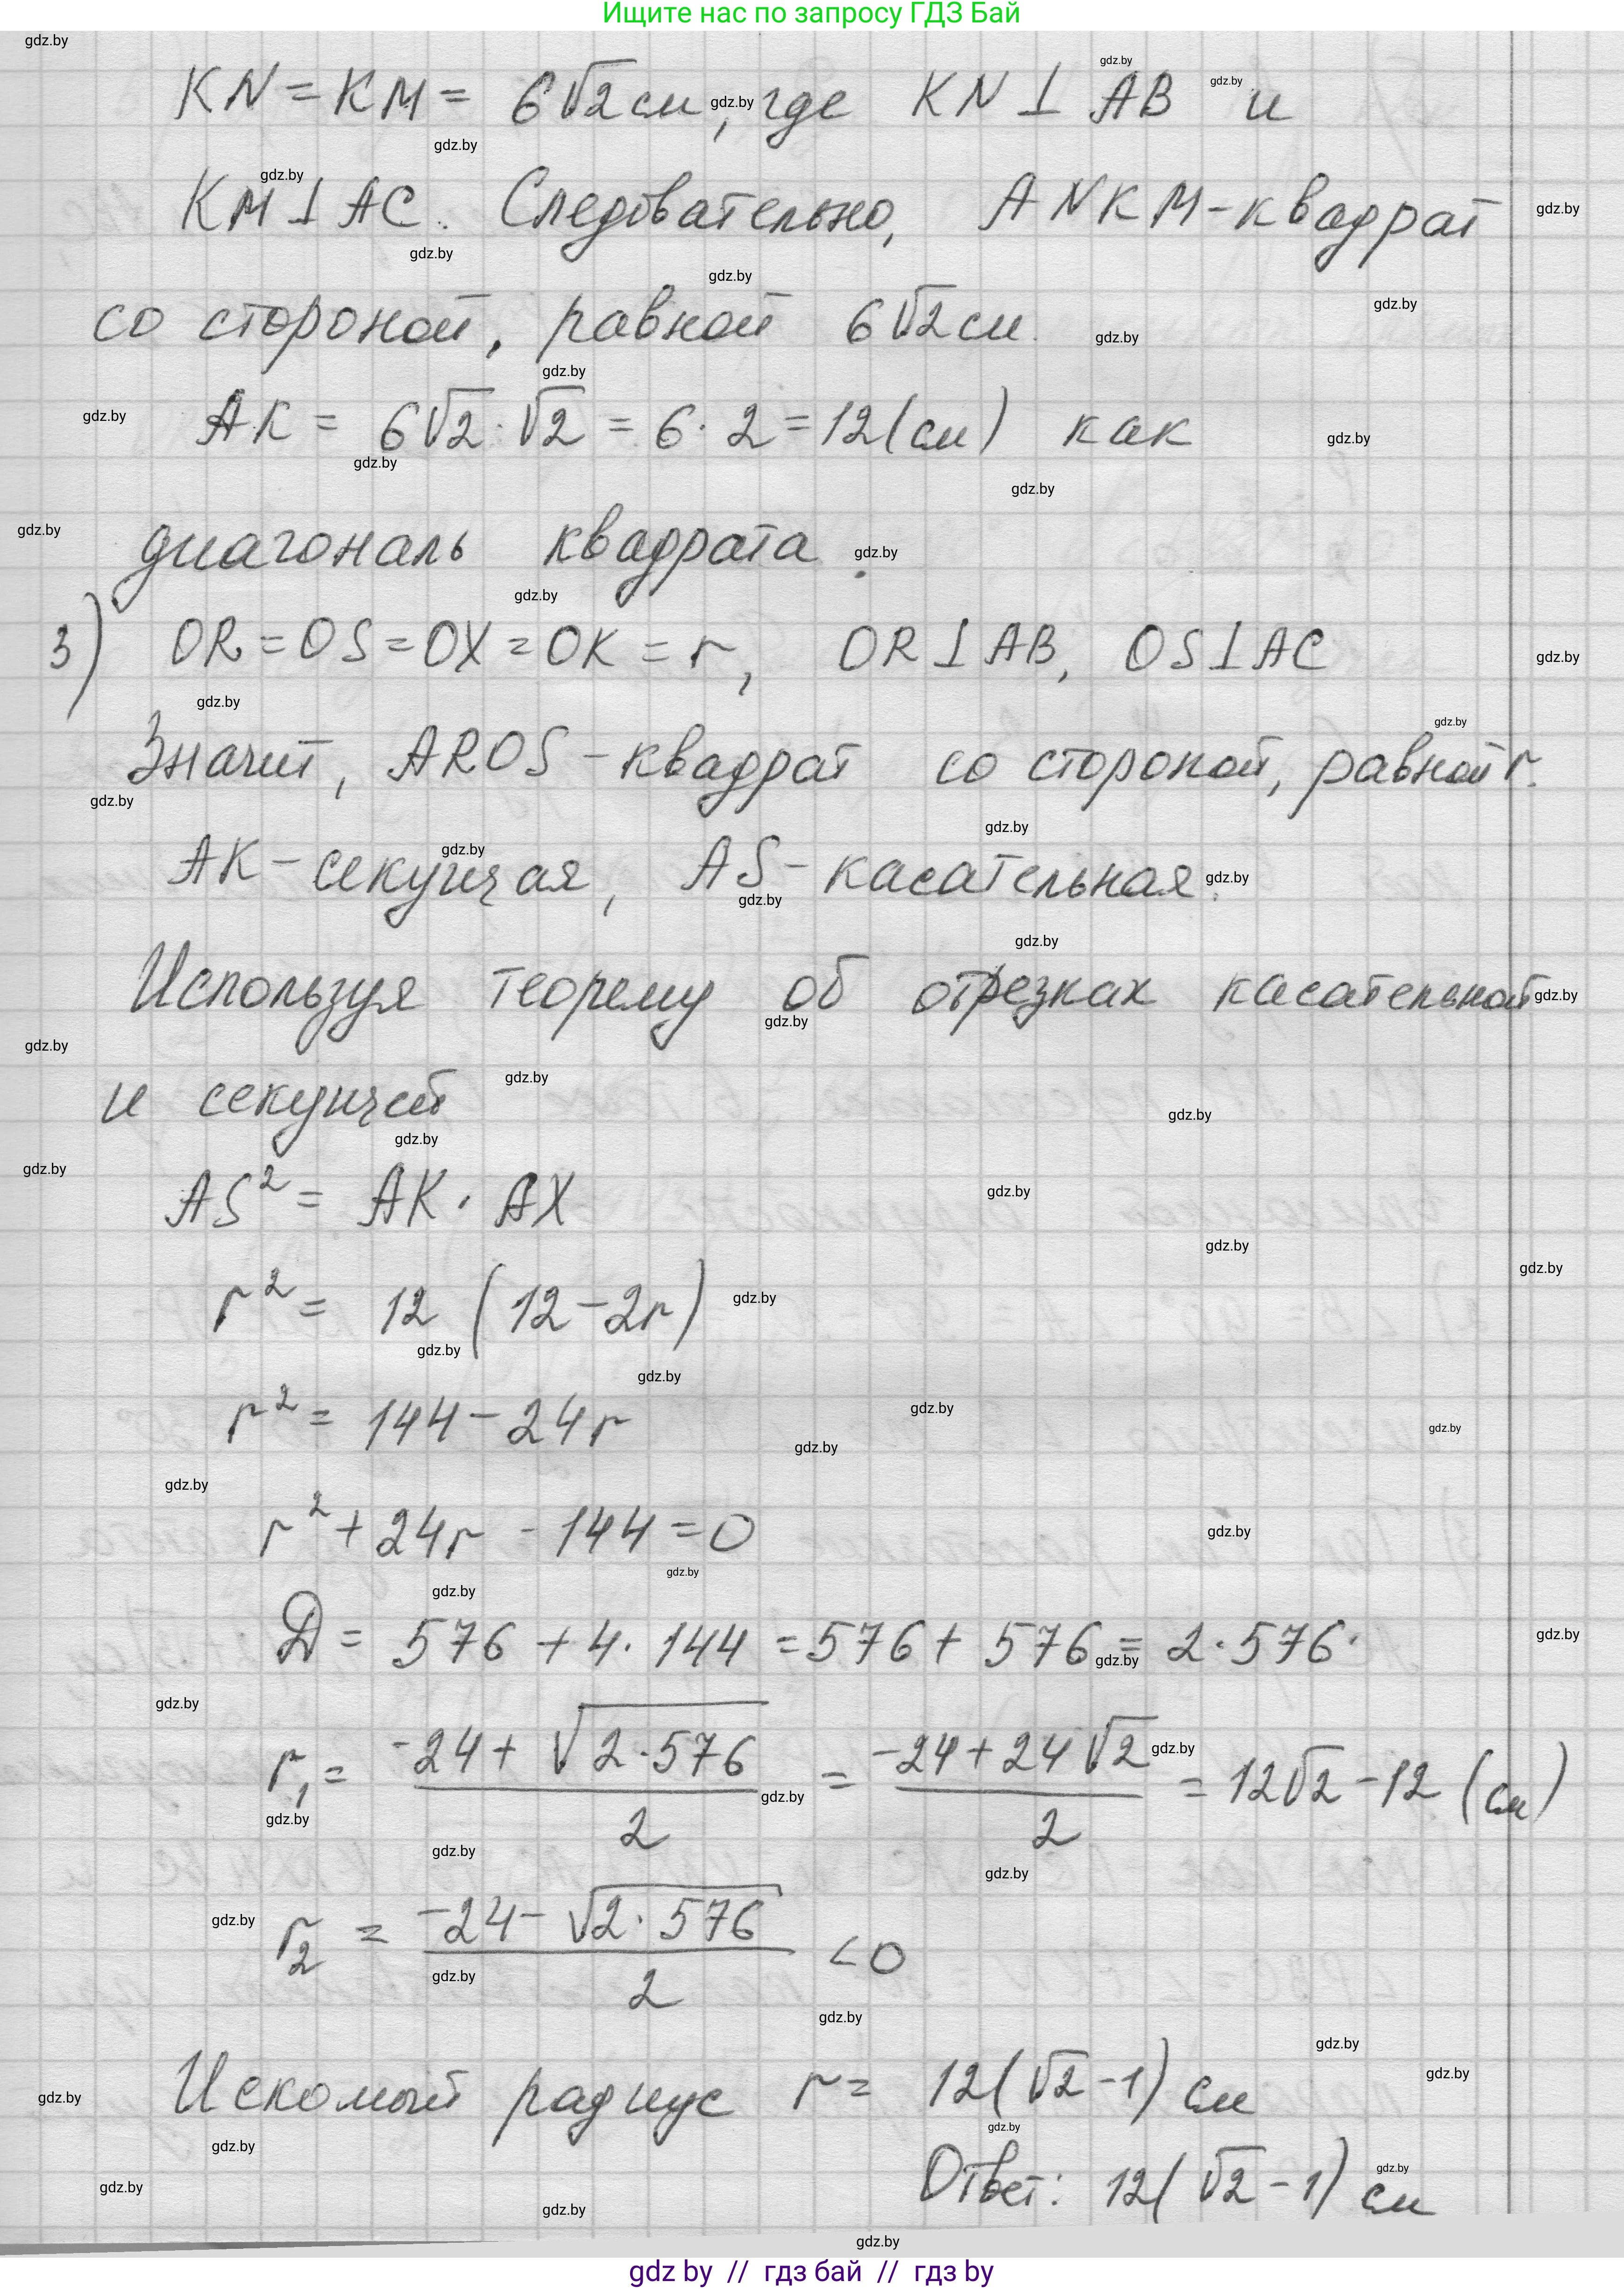 Ищите нас по запросу ГДЗ Бай
KN = KM = 6√2 см, где KN ⊥ AB и
KM ⊥ AC. Следовательно, ANKM - квадрат
со стороной, равной 6√2 см.
AK = 6√2 · √2 = 6 · 2 = 12 (см) как
диагональ квадрата.
3) OR = OS = OX = OK = r, OR ⊥ AB, OS ⊥ AC
Значит, AROS - квадрат со стороной, равной r.
AK - секущая, AS - касательная.
Используя теорему об отрезках касательной
и секущей
AS² = AK · AX
r² = 12 (12 - 2r)
r² = 144 - 24r
r² + 24r - 144 = 0
D = 576 + 4 · 144 = 576 + 576 = 2 · 576.
r₁ = (-24 + √(2 · 576)) / 2 = (-24 + 24√2) / 2 = 12√2 - 12 (см)
r₂ = (-24 - √(2 · 576)) / 2 < 0
Искомый радиус r = 12(√2 - 1) см
Ответ: 12(√2 - 1) см
gdz.by
gdz by // гдз бай // гдз by